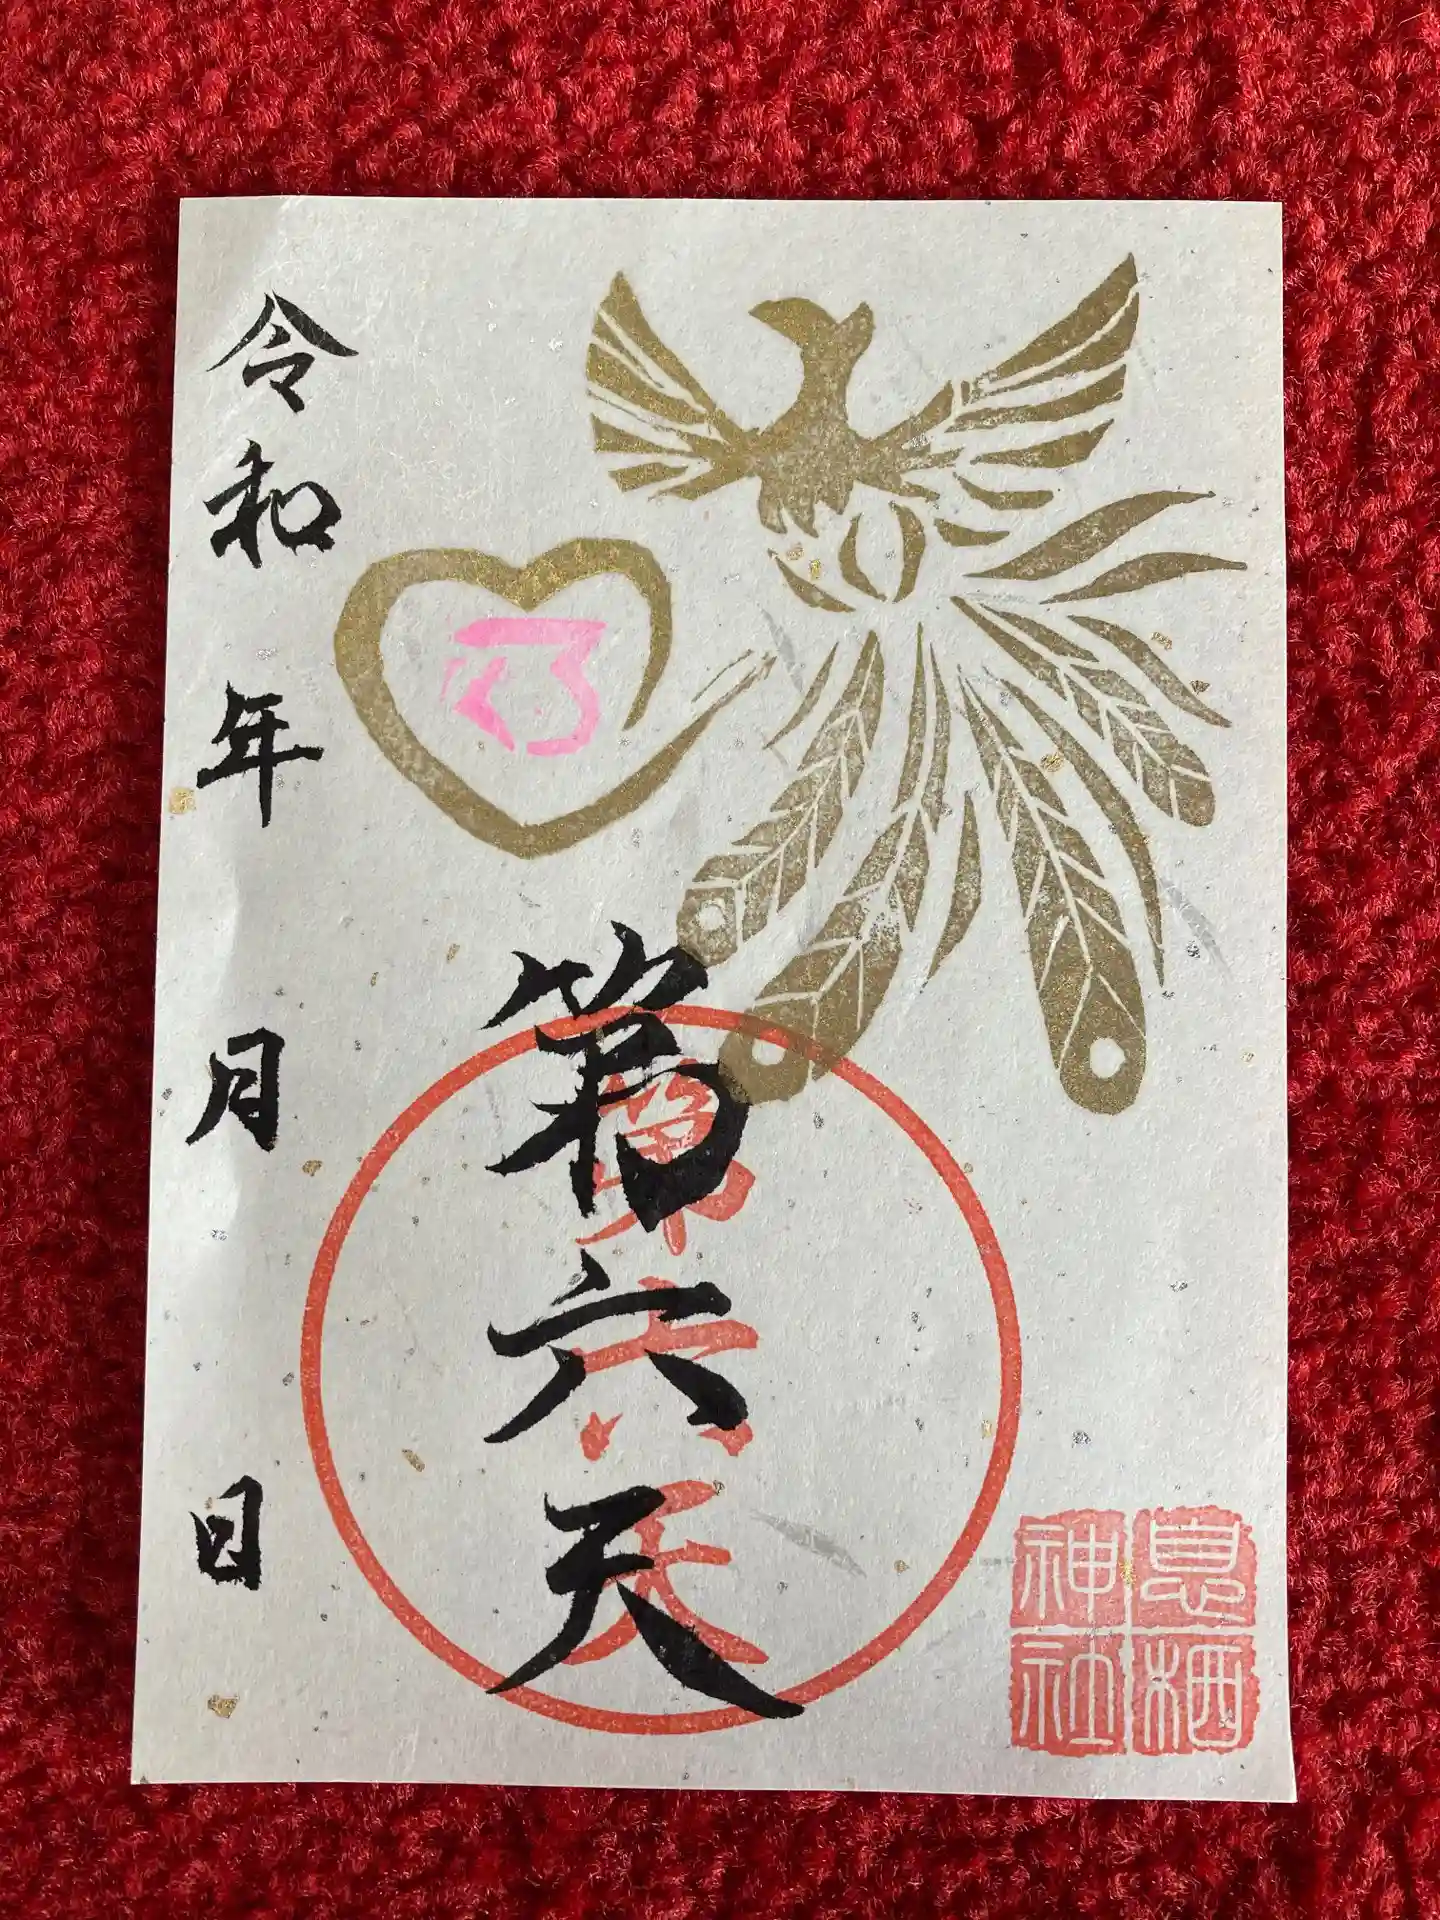 第六天
第六天
息栖
神社
令和 年 月 日